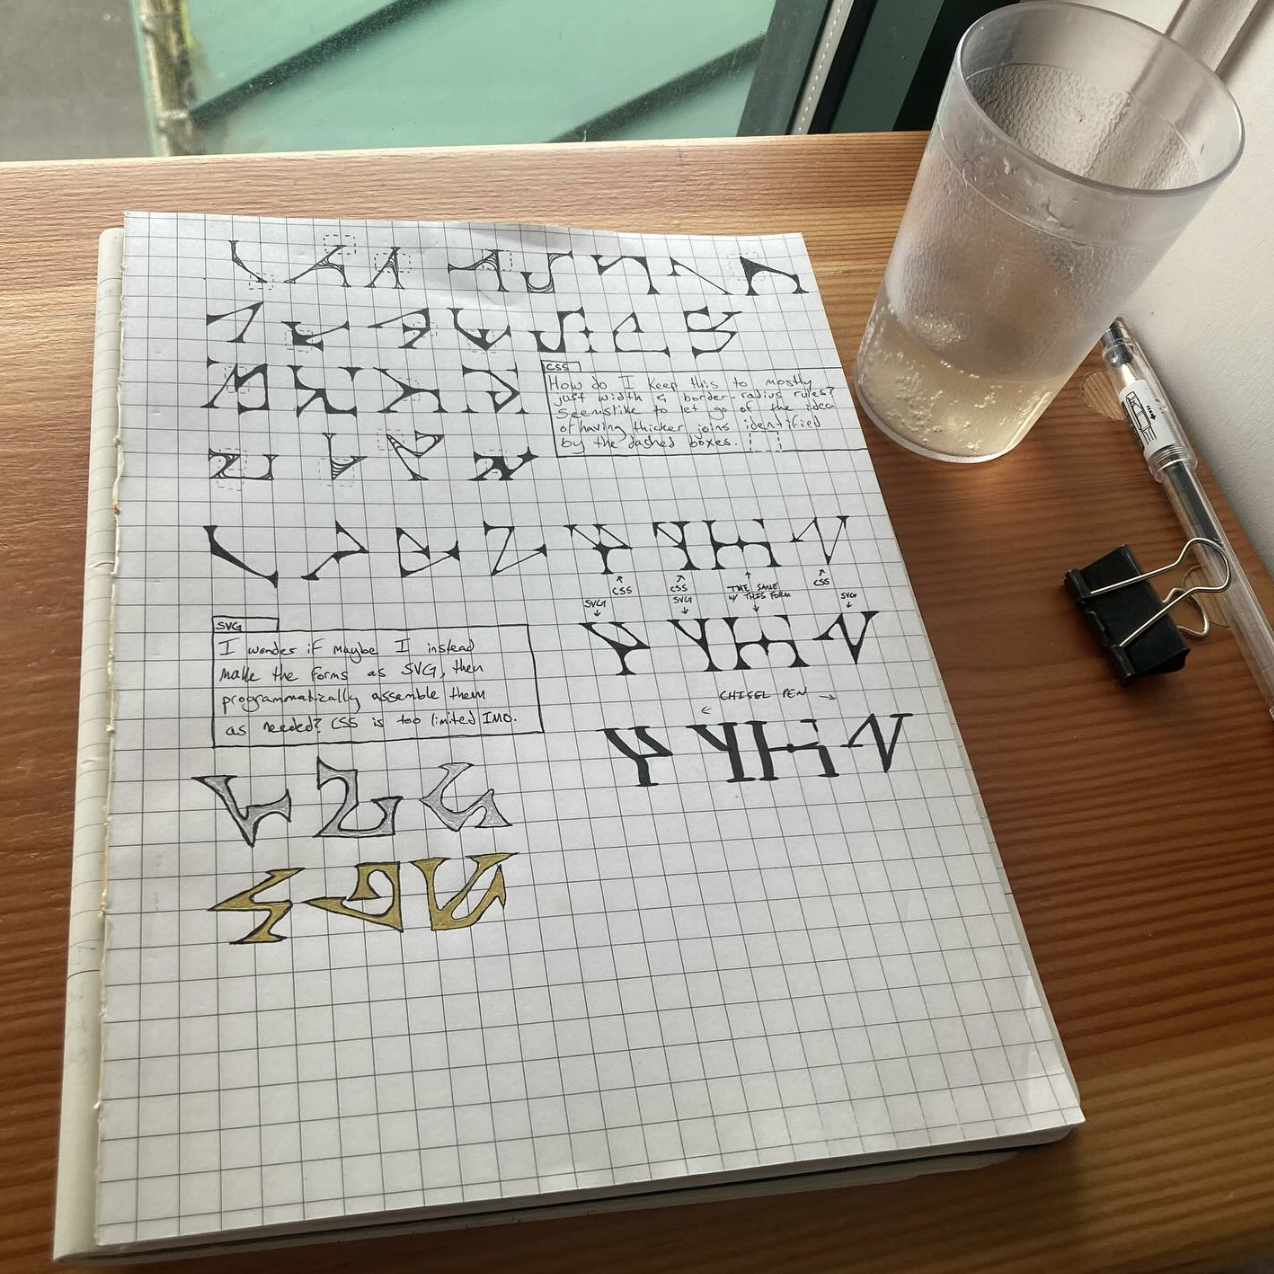 CSS
How do I keep this to mostly
just width & border-radius rules?
Seems like to let go of the idea
of having thicker joins identified
by the dashed boxes.
CSS
CSS
THE SAME
W/ THIS FORM
CSS
SVG
SVG
SVG
SVG
I wonder if maybe I instead
make the forms as SVG, then
programmatically assemble them
as needed? CSS is too limited IMO.
← CHISEL PEN →